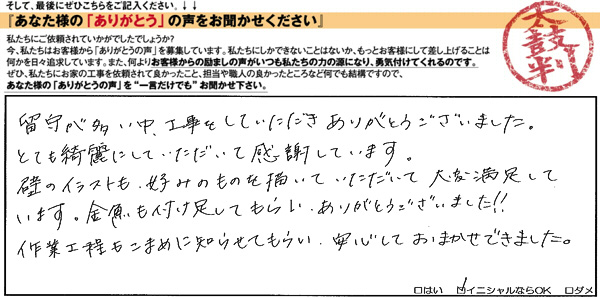 そして、最後にぜひこちらをご記入ください。↓↓
『あなた様の「ありがとう」の声をお聞かせください』
太鼓判
私たちにご依頼されていかがでしたでしょうか?
今、私たちはお客様から「ありがとうの声」を募集しています。私たちにしかできないことはないか、もっとお客様にして差し上げることは
何かを日々追求しています。また、何よりお客様からの励ましの声がいつも私たちの力の源になり、勇気付けてくれるのです。
ぜひ、私たちにお家の工事を依頼されて良かったこと、担当や職人の良かったところなど何でも結構ですので、
あなた様の「ありがとうの声」を“一言だけでも”お聞かせ下さい。
留守が多い中、工事をしていただきありがとうございました。
とても綺麗にしていただいて感謝しています。
壁のイラストも、好みのものを描いていただいて大変満足して
います。金魚も付け足してもらい、ありがとうございました!!
作業工程もこまめに知らせてもらい、安心しておまかせできました。
□はい ☑イニシャルならOK □ダメ